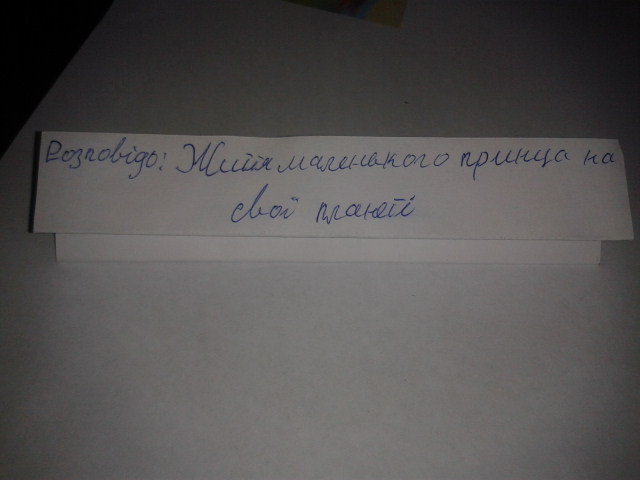 Розповідь: Життя маленького принца на
свої планеті